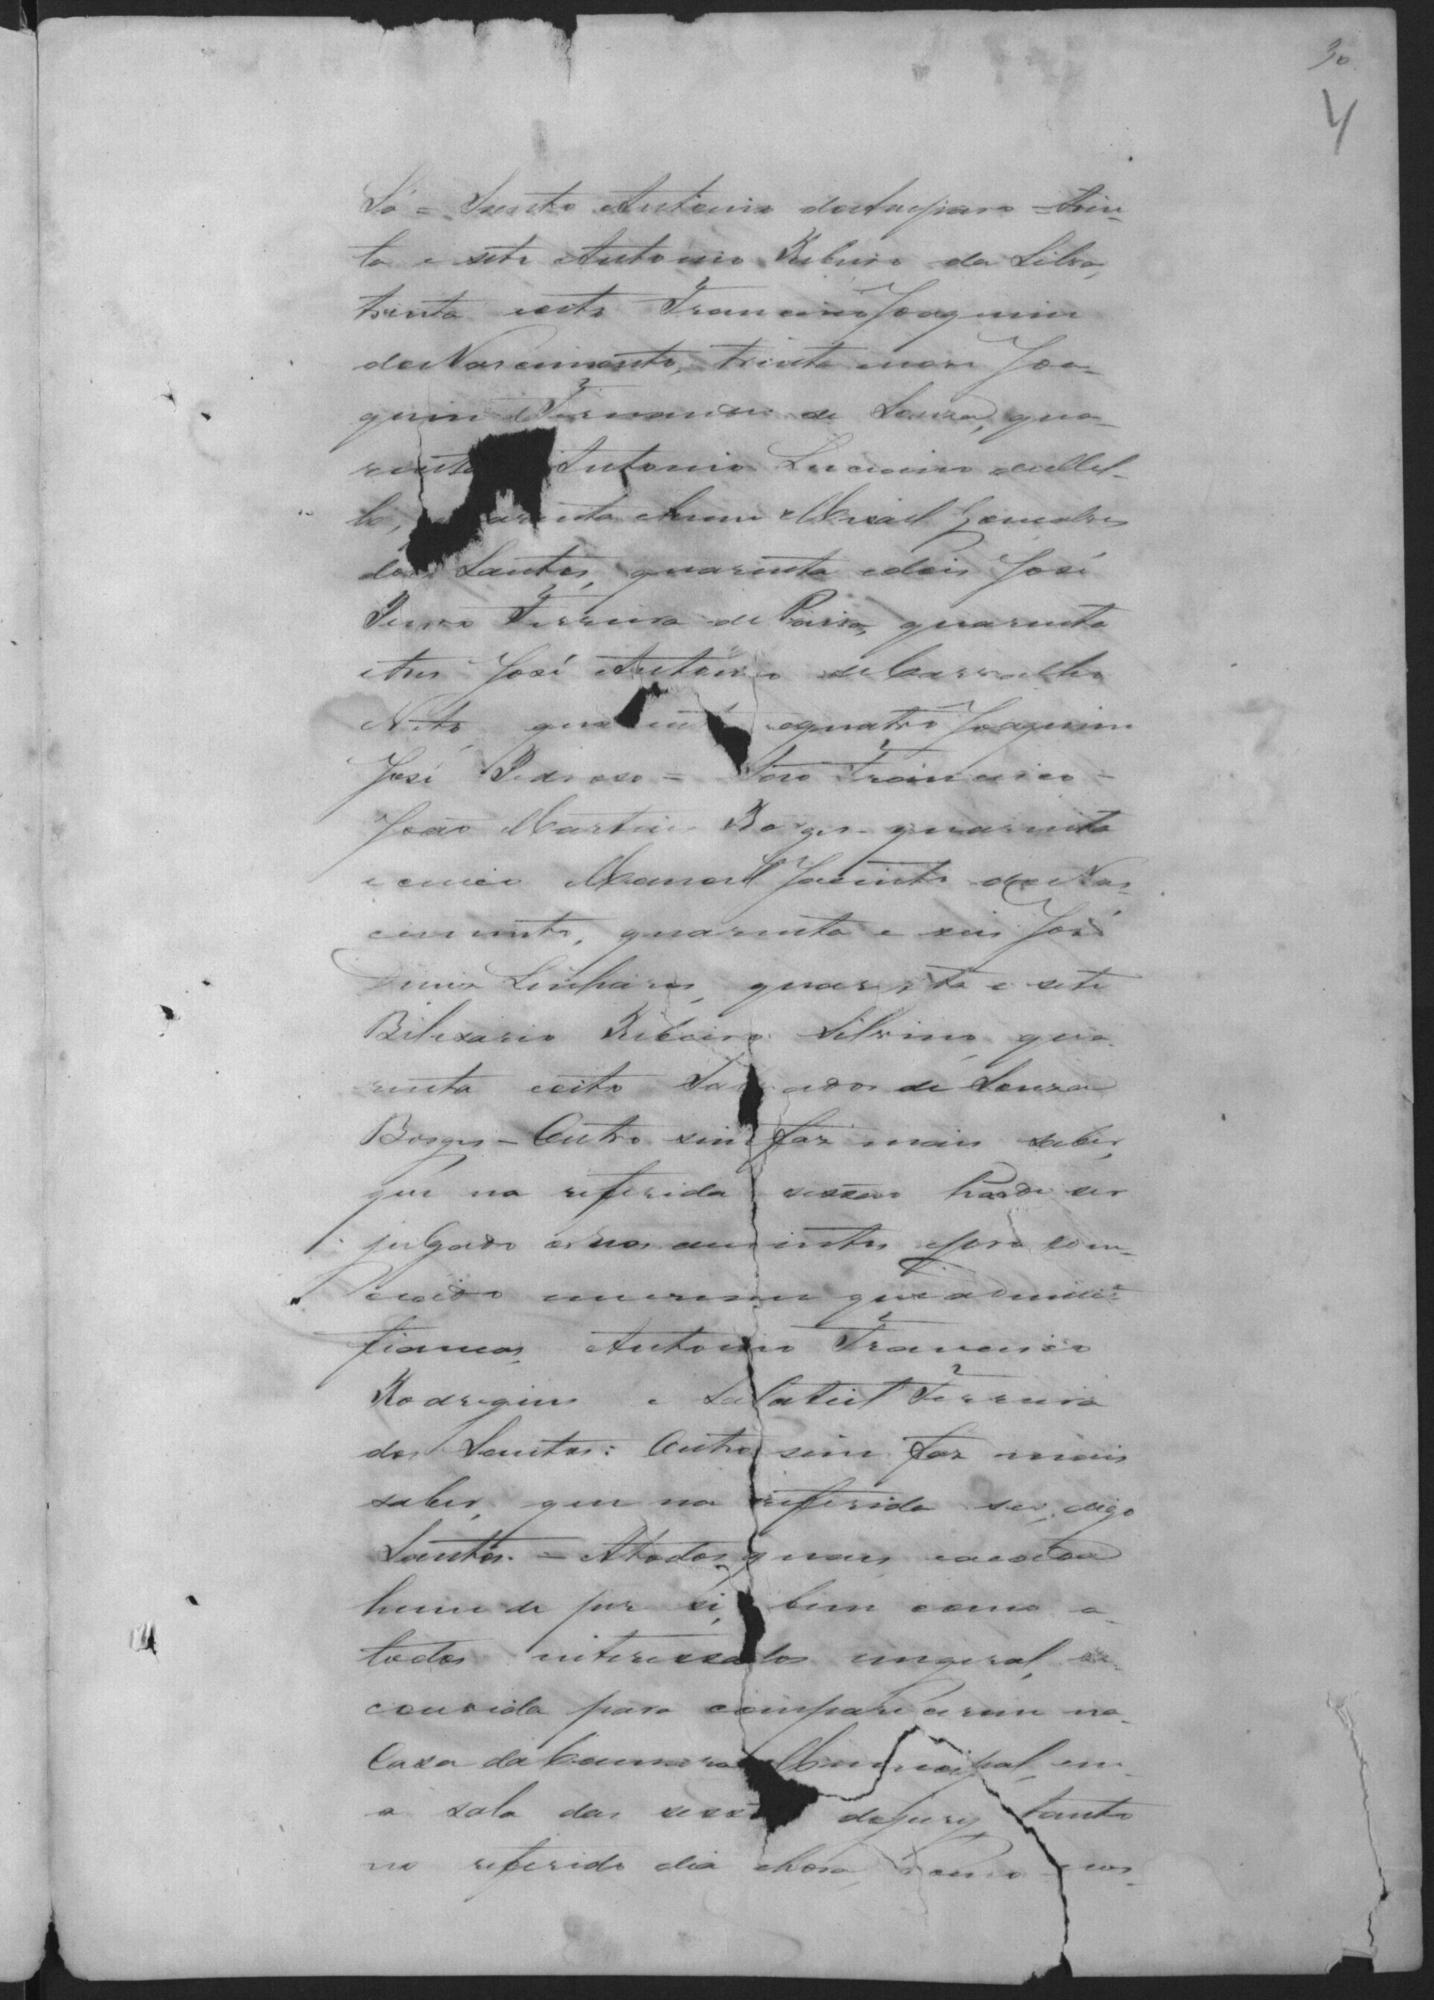 30
4
Sá = Santo Antonio do Amparo = trin-
ta e sete Antonio Ribeiro da Silva,
trinta e oito Francisco Joaquim
do Nascimento, trinta e nove Joa-
quim Fernandes de Souza, qua-
renta Antonio Luciano de Mel-
lo, quarenta e hum Misael Gonçalves
dos Santos, quarenta e dois José
Ferreira de Paiva, quarenta
e tres José Antonio de Carvalho
Neto, quarenta e quatro Joaquim
José Pedroso = São Francisco =
João Martins Borges quarenta
e cinco Manoel Jacinto do Nas-
cimento, quarenta e seis José
Linhares, quarenta e sete
Bilisario Ribeiro Silvino, qua-
renta e oito de Souza
Borges = Outro sim faz mais saber,
que na referida sessão hade ser
julgado os reos ausentes
em crime que admitte
fiança, Antonio Francisco
Rodrigues e Salatiel Ferreira
dos Santos: Outro sim faz mais
saber, que na referida ses, digo
Santos. = A todos quais e a cada
hum de per si, bem como a
todos interessados em geral, se
convida para comparecerem na
Casa da Camara Municipal, em
a sala das sessões do jury, tanto
no referido dia e hora, como nos